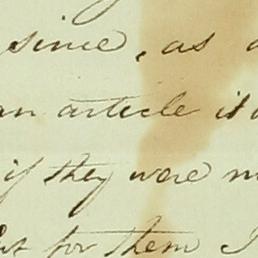 since, as
an article it
if they were
for them I